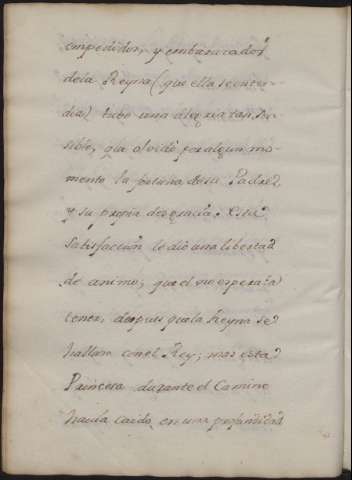 empedidos, y embarazados
dela Reyna (que ella se enten-
dia) tubo una alegria tan sen-
sible, que olvidó por algun mo-
mento la fortuna de su Padre
y su propia desgracia. Esta
satisfaccion le dio una libertad
de animo, que el no esperaba
tener, despues que la Reyna se
hallara con el Rey; mas esta
Princesa durante el Camino
havia caido en una profundidad